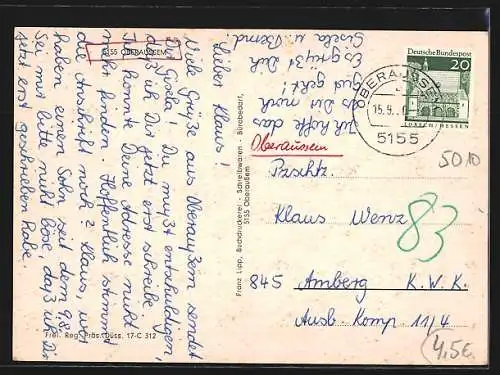 5155 OBERAUSSEM
Lieber Klaus!
Viele Grüße aus Oberaußem sendet
Dir Gisela! Du mußt entschuldigen,
daß ich Dir jetzt erst schreibe.
Ich konnte Deine Adresse nicht
mehr finden. Hoffentlich stimmt
die Anschrift noch? Klaus, wir
haben einen Sohn seit dem 9.8.
Sei mir bitte nicht böse, daß ich Dir
jetzt erst geschrieben habe.
Ich hoffe das
es Dir noch
gut geht!
Es grüßt Dich
Gisela u. Bernd
Frei. Reg. Präs. Düss. 17-C 312
Franz Lipp, Buchdruckerei - Schreibwaren - Bürobedarf,
5155 Oberaußem
Deutsche Bundespost
20
LORSCH/HESSEN
OBERAUSSEM
15.9.
5155
Oberaussem
5010
Pzschtz.
Klaus Wenz
83
845 Amberg K.W.K.
Ausb. Komp 11/4
4,5€